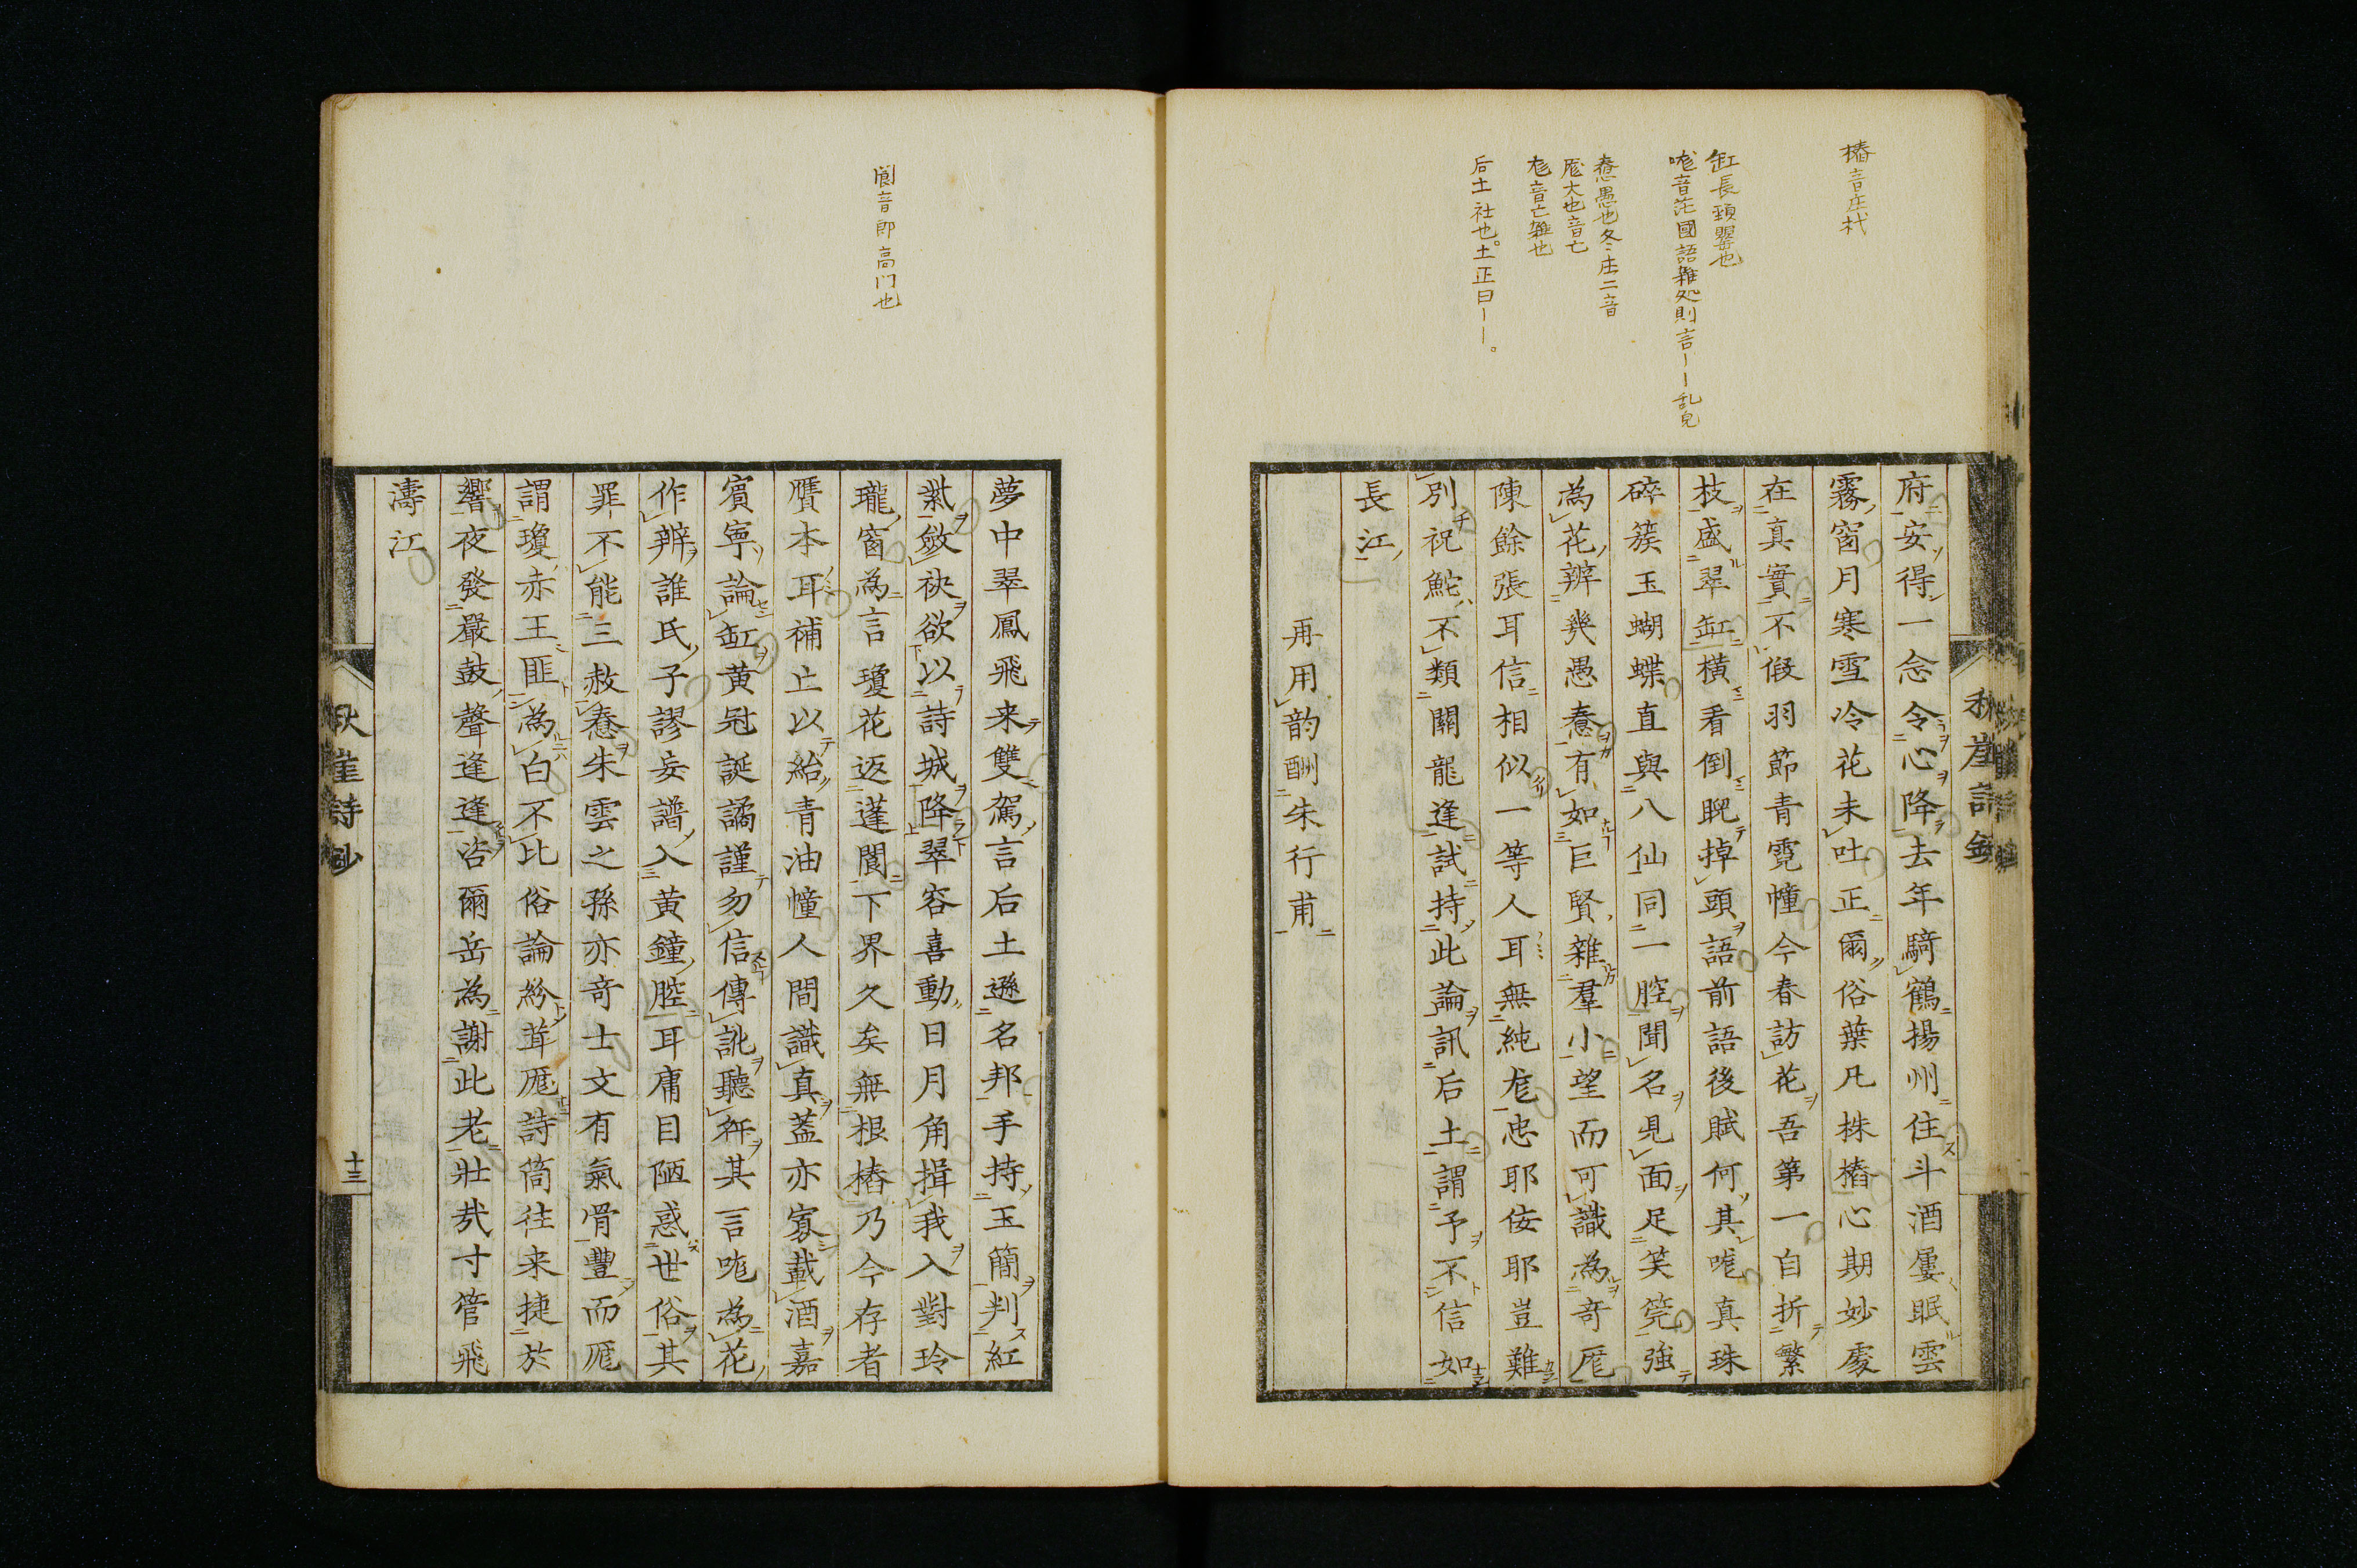 樁音庄杙
缸長頸甖也
哤音茫國語雜処則言ーー乱皃
惷愚也冬庄二音
厖大也音亡
尨音亡雑也
后土社也。土正曰ーー。
府安得一念令心降去年騎鶴揚州住斗酒屢眠雲
霧窗月寒雪冷花未吐正爾俗葉凡株樁心期妙處
在真實不假羽節青霓幢今春訪花吾第一自折繁
枝盛翠缸橫看倒睨掉頭語前語後賦何其哤真珠
碎簇玉蝴蝶直與八仙同一腔聞名見面足笑筦強
為花辨幾愚惷有如巨賢雜羣小望而可識為竒厖
陳餘張耳信相似一等人耳無純尨忠耶佞耶豈難
別祝鮀不類關龍逄試持此論訊后土謂予不信如
長江
再用韵酬朱行甫
秋崖詩鈔
夢中翠鳳飛来雙駕言后土遜名邦手持玉簡判紅
紫斂袂欲以詩城降翠容喜動日月角揖我入對玲
瓏窗為言瓊花返蓬閬下界久矣無根樁乃今存者
贋本耳補亡以紿青油幢人間識真蓋亦寡載酒嘉
賓寧論缸黄冠誕譎謹勿信傳訛聽衍其言哤為花
作辨誰氏子謬妄譜入黄鐘腔耳庸目陋惑世俗其
罪不能三赦惷朱雲之孫亦竒士文有氣骨豐而厖
謂瓊赤王匪為白不比俗論紛茸厖詩筒往来捷於
響夜發嚴鼓聲逢逢咨爾岳為謝此老壯哉寸管飛
濤江
閬音郎高门也
秋崖詩鈔
十三